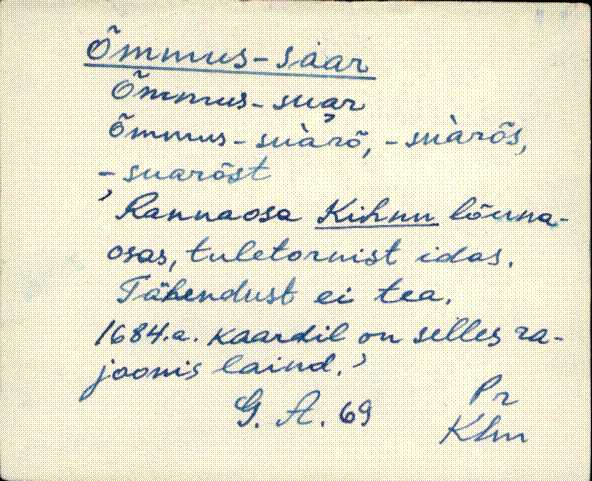 Õmmus-sàar
Õmmus-suar
õmmus-sùàrõ, -sùàrõs,
-suarõst
'Rannaosa Kihnu lõuna-
osas, tuletornist idas.
Tähendust ei tea.
1684.a. kaardil on selles ra-
joonis laind.'
G. A. 69
Pr
Khn